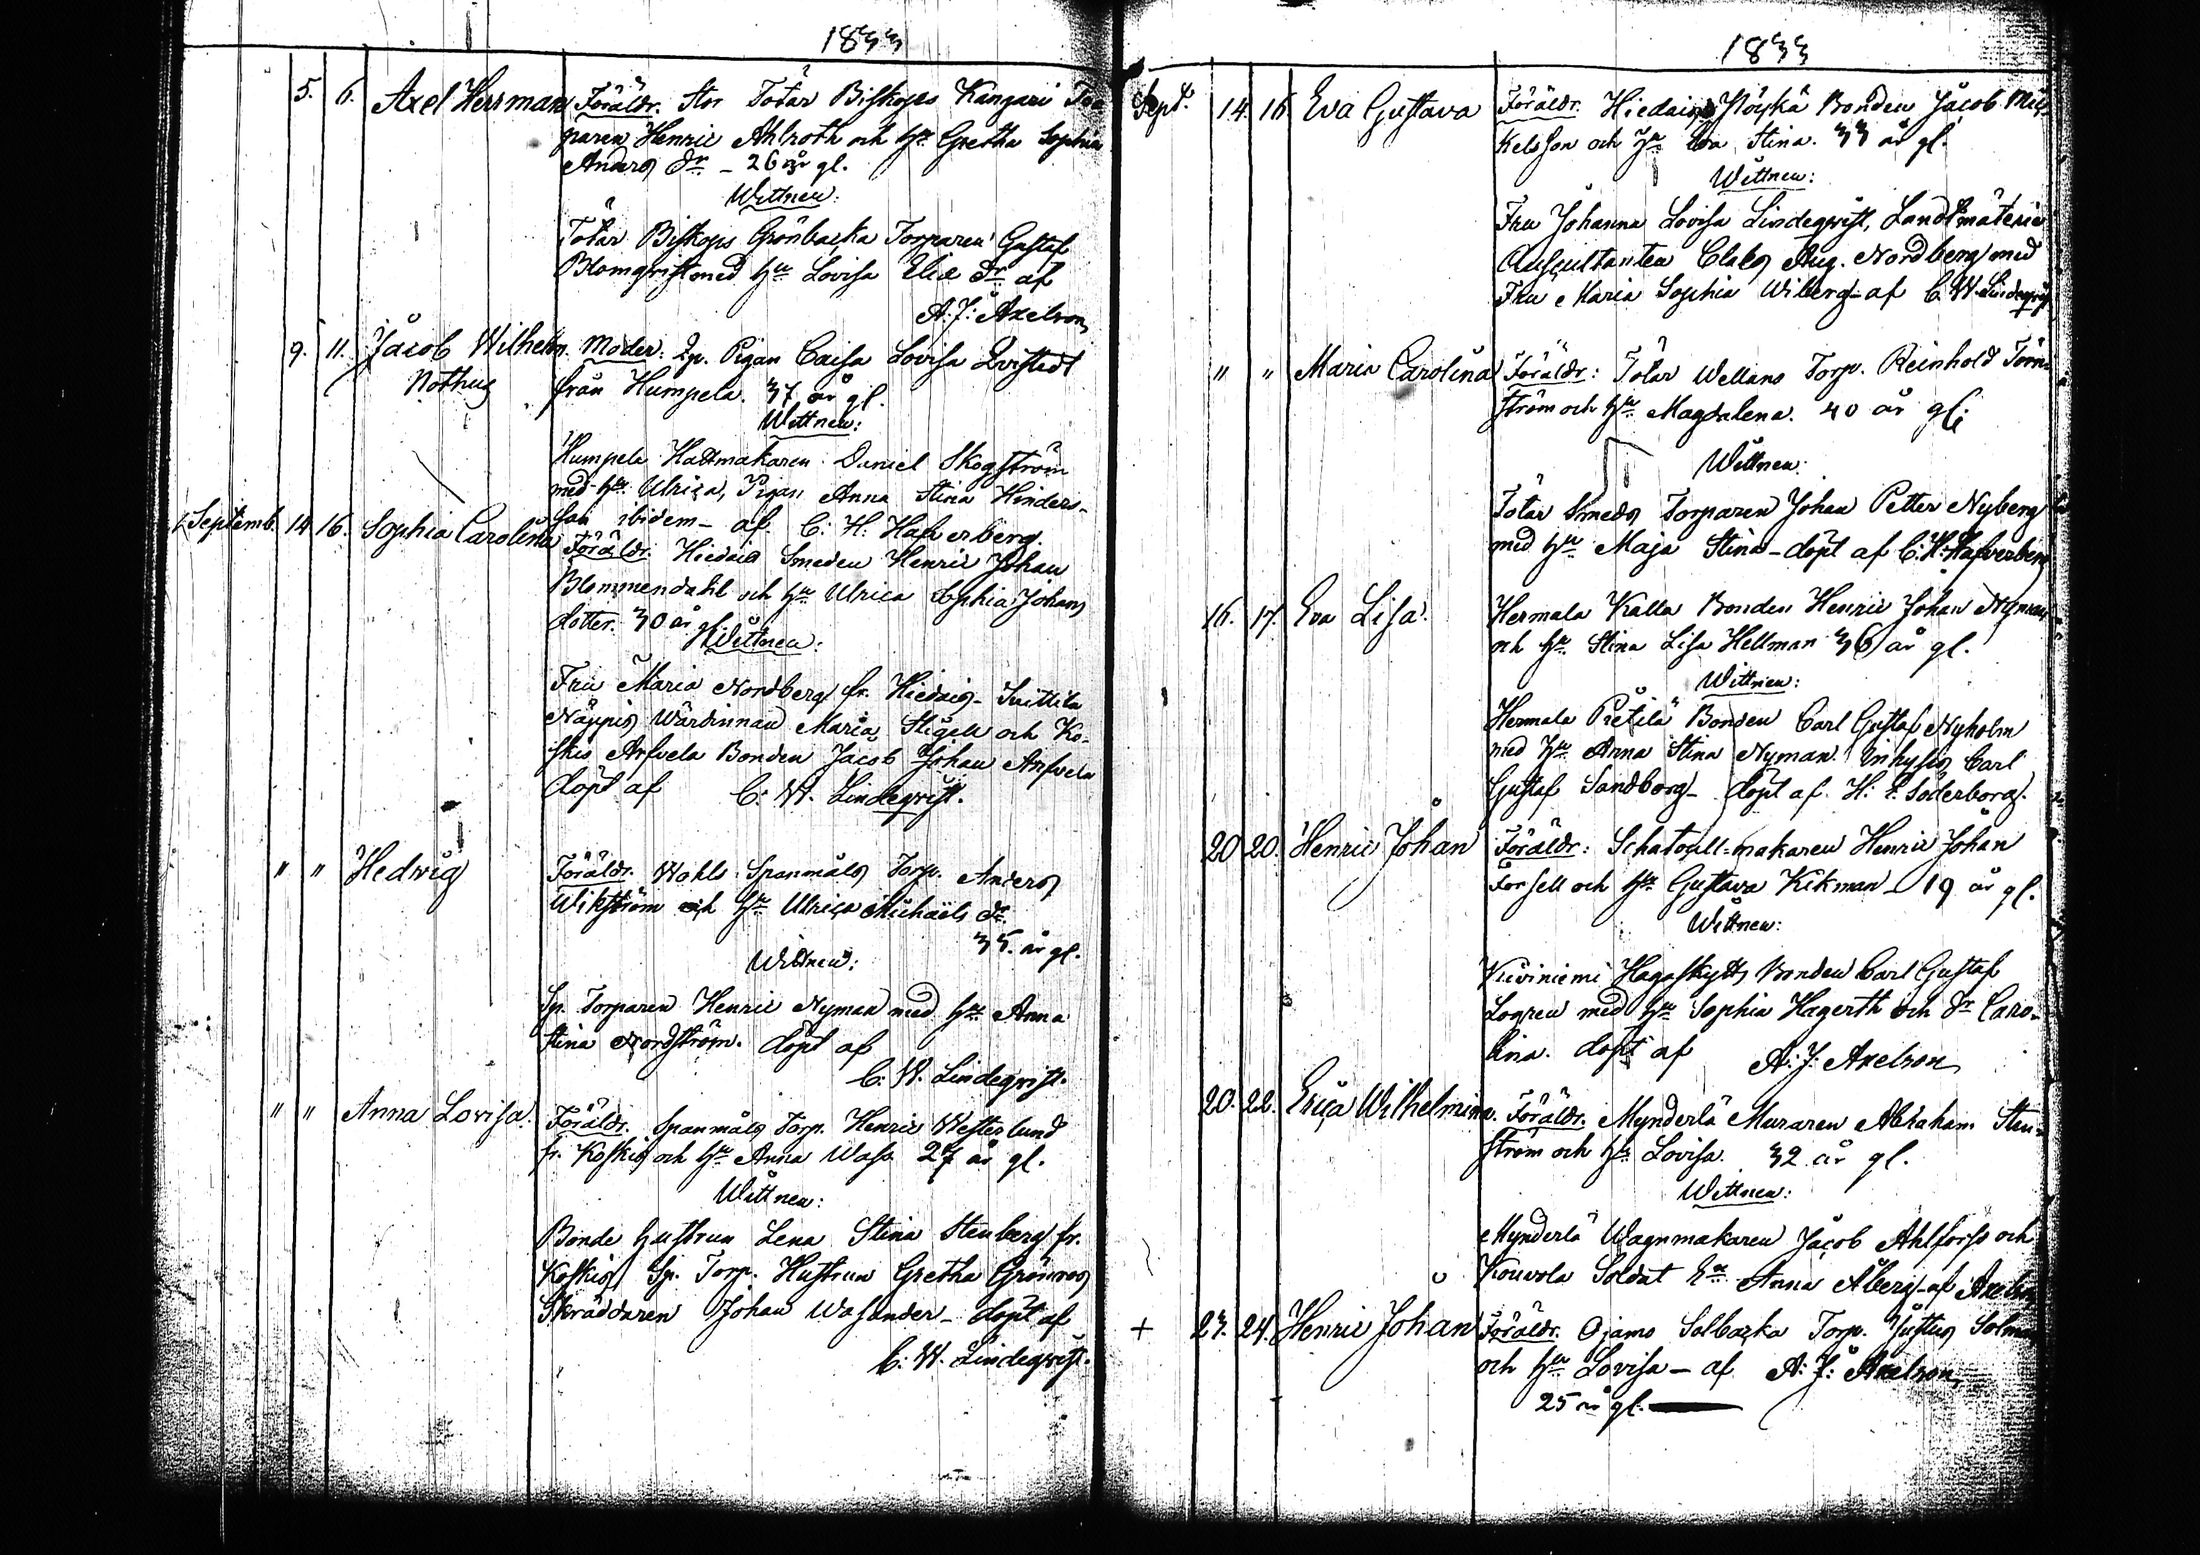 1833
5. 6. Axel Herrman Föräldr. Stor Totar Biskops Kangari Tor
paren Henric Ahlroth och hu Gretha Sophia
Anders dr - 26 år gl.
Wittnen:
Totar Biskops Grönbacka Torparen Gustaf
Blomqvist med hu Lovisa Elia dr af
A. J: Axelson
9. 11. Jacob Wilhelm Moder: Pigan Caisa Lovisa Qvistedt
Nothus från Humpela. 37 år gl.
Wittnen:
Humpela Hattmakaren Daniel Skogström
med hu Ulrica, Pigan Anna Stina Hinders-
son ibidem - af C: H: Hafverberg.
Septemb. 14 16. Sophia Carolina Föräldr. Hiedais Smeden Henric Johan
Blommendahl och hu Ulrica Sophia Johans
dotter. 30 år gl.
Wittnen:
Fru Maria Nordberg fr. Hiedais - Suittila
Näppis Wärdinnan Maria Stigell och Ko-
skis Anfvela Bonden Jacob Johan Anfvela
döpt af C: W. Lindeqvist.
" " Hedwig Föräldr. Wahls Spanmåls Torp. Anders
Wikström och hu Ulrica Michaels dr.
35. år gl.
Wittnen:
Sp. Torparen Henric Nyman med hu Anna
Stina Nordström. döpt af
C: W. Lindeqvist.
" " Anna Lovisa. Föräldr. Spanmåls Torp. Henric Westerlund
fr. Koskis och hu Anna Wass 27 år gl.
Wittnen:
Bonde hustrun Lena Stina Stenberg fr.
Koskis, Sp. Torp. Hustrun Gretha Grönroos
Skräddaren Johan Wasander - döpt af
C: W. Lindeqvist.
1833
Sept. 14. 16 Eva Gustava Föräldr. Hiedais Höykä Bonden Jacob Mic-
kelsson och hu Eva Stina. 33 år gl.
Wittnen:
Fru Johanna Lovisa Lindeqvist, Landtmäterie
Auscultanten Claes Aug. Nordberg med
Fru Maria Sophia Wiberg - af C. W. Lindeqvist
" " Maria Carolina Föräldr: Totar Wellans Torp. Reinhold Törn
ström och hu Magdalena. 40 år gl:
Wittnen:
Totar Smeds Torparen Johan Petter Nyberg
med hu Maja Stina - döpt af C: H: Hafverberg
16. 17. Eva Lisa. Hermala Kalla Bonden Henric Johan Nyman
och hu Stina Lisa Hellman 36 år gl.
Wittnen:
Hermala Prétilä Bonden Carl Gustaf Nyholm
med hu Anna Stina Nyman. Inhyses Carl
Gustaf Sandborg - döpt af H: Söderborg.
20 20. Henric Johan Föräldr: Schatoull-makaren Henric Johan
Forsell och hu Gustava Kikman - 19 år gl.
Wittnen:
Kiviniemi Hagaskytts Bonden Carl Gustaf
Logren med hu Sophia Hagerth och dr Caro-
lina. döpt af A: J: Axelson
20. 22. Erica Wilhelmina. Föräldr. Mynderlä Muraren Abraham Sten-
ström och hu Lovisa. 32 år gl.
Wittnen:
Mynderlä Wagnmakaren Jacob Ahlforss och
Kouvola Soldat Anna Åberg - af Axelson
+ 23. 24. Henric Johan Föräldr. Ojamo Solbacka Torp. Justus Solman
och hu Lovisa - af A: J: Axelson,
25 år gl.